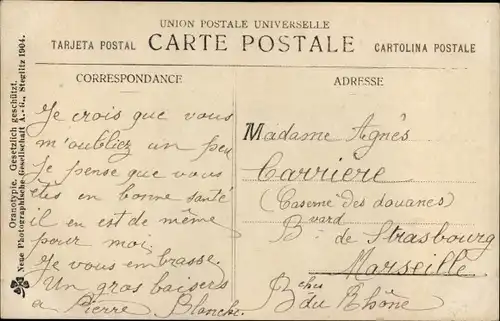 UNION POSTALE UNIVERSELLE
TARJETA POSTAL CARTE POSTALE CARTOLINA POSTALE
CORRESPONDANCE
Je crois que vous
m'oubliez un peu
Je pense que vous
êtes en bonne santé
il en est de même
pour moi.
Je vous embrasse.
Un gros baisers
a Pierre Blanche.
ADRESSE
Madame Agnès
Carrière
(Caserne des douanes)
Bvard de Strasbourg
Marseille
Bches du Rhône
Orasotypie. Gesetzlich geschützt.
Neue Photographische Gesellschaft A.-G., Steglitz 1904.